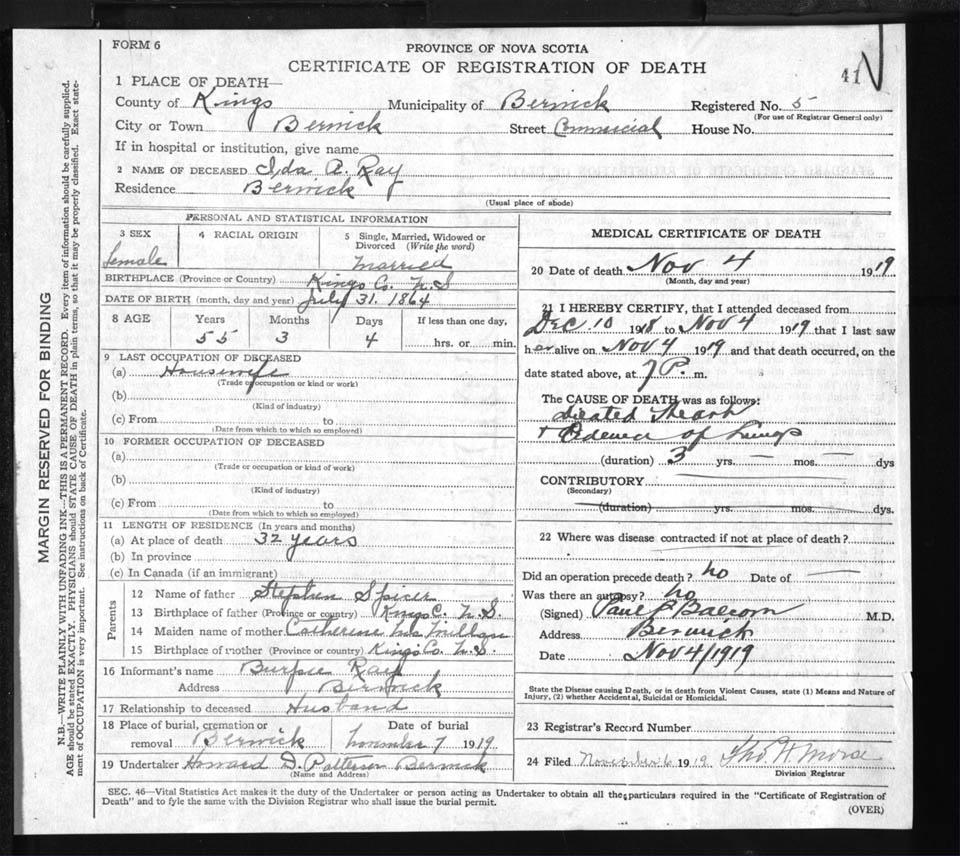 FORM 6
PROVINCE OF NOVA SCOTIA
CERTIFICATE OF REGISTRATION OF DEATH
41
1 PLACE OF DEATH—
County of Kings Municipality of Berwick Registered No. 5
(For use of Registrar General only)
City or Town Berwick Street Commercial House No.
If in hospital or institution, give name
2 NAME OF DECEASED Ida A. Ray
Residence Berwick
(Usual place of abode)
PERSONAL AND STATISTICAL INFORMATION
3 SEX 4 RACIAL ORIGIN 5 Single, Married, Widowed or
Divorced (Write the word)
female married
BIRTHPLACE (Province or Country) Kings Co. N.S
DATE OF BIRTH (month, day and year) July 31. 1864
8 AGE Years Months Days If less than one day,
55 3 4 hrs. or min.
9 LAST OCCUPATION OF DECEASED
(a) Housewife
(Trade or occupation or kind or work)
(b)
(Kind of industry)
(c) From to
(Date from which to which so employed)
10 FORMER OCCUPATION OF DECEASED
(a)
(Trade or occupation or kind of work)
(b)
(Kind of industry)
(c) From to
(Date from which to which so employed)
11 LENGTH OF RESIDENCE (In years and months)
(a) At place of death 32 years
(b) In province
(c) In Canada (if an immigrant)
Parents
12 Name of father Stephen Spicer
13 Birthplace of father (Province or country) Kings C. N.S.
14 Maiden name of mother Catherine McMillan
15 Birthplace of mother (Province or country) Kings Co. N.S.
16 Informant's name Burpee Ray
Address Berwick
17 Relationship to deceased Husband
18 Place of burial, cremation or Date of burial
removal Berwick November 7 1919
19 Undertaker Howard D. Patterson Berwick
(Name and Address)
MEDICAL CERTIFICATE OF DEATH
20 Date of death Nov 4 1919
(Month, day and year)
21 I HEREBY CERTIFY, that I attended deceased from
Dec 10 1918 to Nov 4 1919 that I last saw
her alive on Nov 4 1919 and that death occurred, on the
date stated above, at 7 P. m.
The CAUSE OF DEATH was as follows:
dilated Heart
+ Edema of Lungs
(duration) 3 yrs. — mos. — dys
CONTRIBUTORY
(Secondary)
(duration) yrs. mos. dys.
22 Where was disease contracted if not at place of death?
Did an operation precede death? no Date of —
Was there an autopsy? no
(Signed) Paul Balcom M.D.
Address Berwick
Date Nov 4/1919
State the Disease causing Death, or in death from Violent Causes, state (1) Means and Nature of
Injury, (2) whether Accidental, Suicidal or Homicidal.
23 Registrar's Record Number
24 Filed November 6 1919 Tho. H Morse
Division Registrar
SEC. 46—Vital Statistics Act makes it the duty of the Undertaker or person acting as Undertaker to obtain all the particulars required in the "Certificate of Registration of
Death" and to fyle the same with the Division Registrar who shall issue the burial permit.
(OVER)
MARGIN RESERVED FOR BINDING
N.B.—WRITE PLAINLY WITH UNFADING INK—THIS IS A PERMANENT RECORD. Every item of information should be carefully supplied.
AGE should be stated EXACTLY. PHYSICIANS should STATE CAUSE OF DEATH in plain terms, so that it may be properly classified. Exact state-
ment of OCCUPATION is very important. See instructions on back of Certificate.